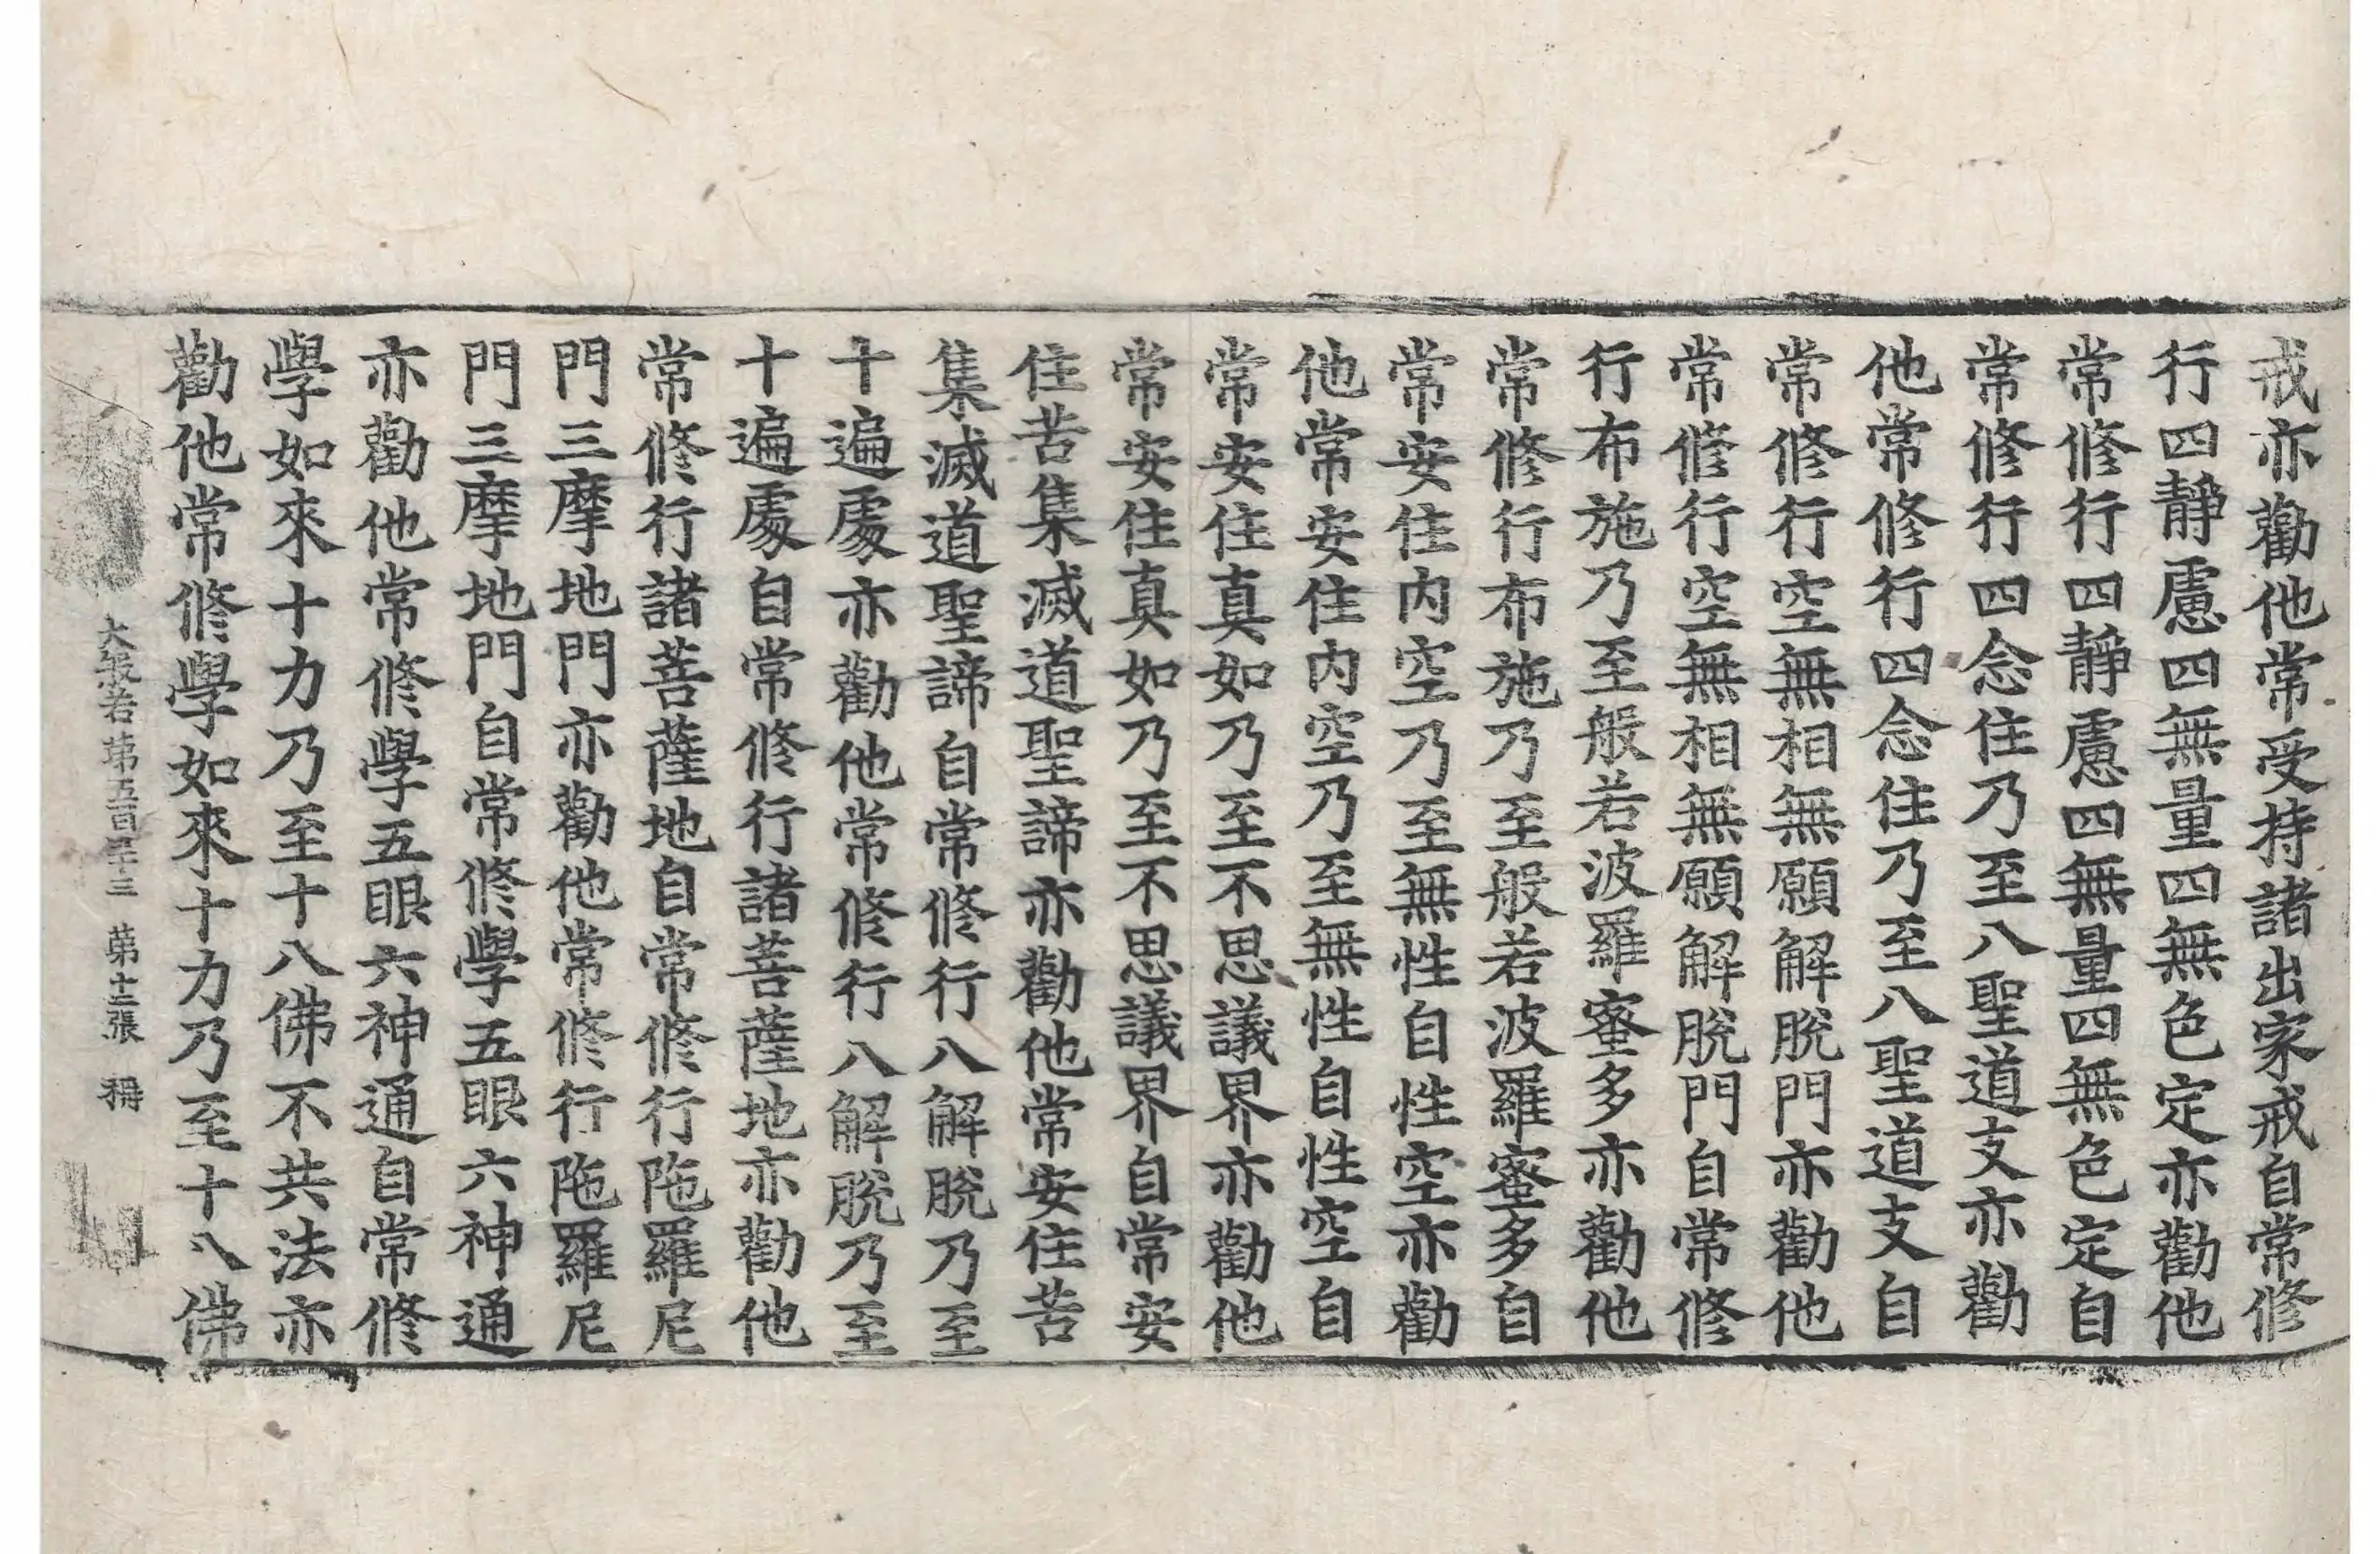 戒亦勸他常受持諸出家戒自常修
行四靜慮四無量四無色定亦勸他
常修行四靜慮四無量四無色定自
常修行四念住乃至八聖道支亦勸
他常修行四念住乃至八聖道支自
常修行空無相無願解脫門亦勸他
常修行空無相無願解脫門自常修
行布施乃至般若波羅蜜多亦勸他
常修行布施乃至般若波羅蜜多自
常安住內空乃至無性自性空亦勸
他常安住內空乃至無性自性空自
常安住真如乃至不思議界亦勸他
常安住真如乃至不思議界自常安
住苦集滅道聖諦亦勸他常安住苦
集滅道聖諦自常修行八解脫乃至
十遍處亦勸他常修行八解脫乃至
十遍處自常修行諸菩薩地亦勸他
常修行諸菩薩地自常修行陁羅尼
門三摩地門亦勸他常修行陁羅尼
門三摩地門自常修學五眼六神通
亦勸他常修學五眼六神通自常修
學如來十力乃至十八佛不共法亦
勸他常修學如來十力乃至十八佛
大般若第五百十三 第十二張